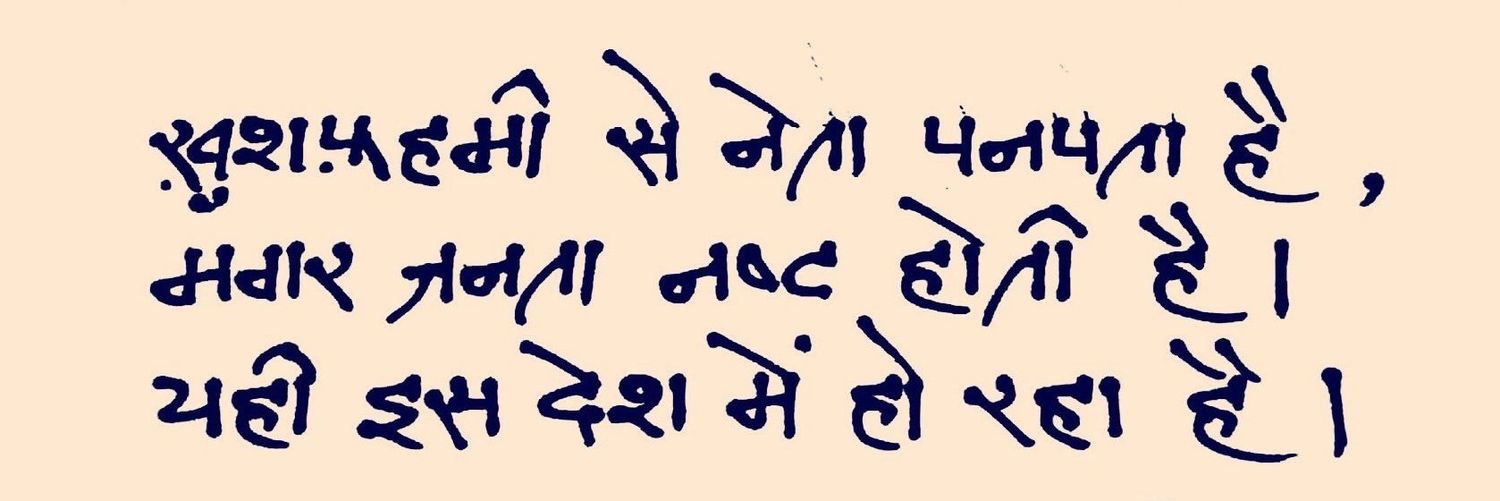 ख़ुशफ़हमी से नेता पनपता है,
मगर जनता नष्ट होती है।
यही इस देश में हो रहा है।